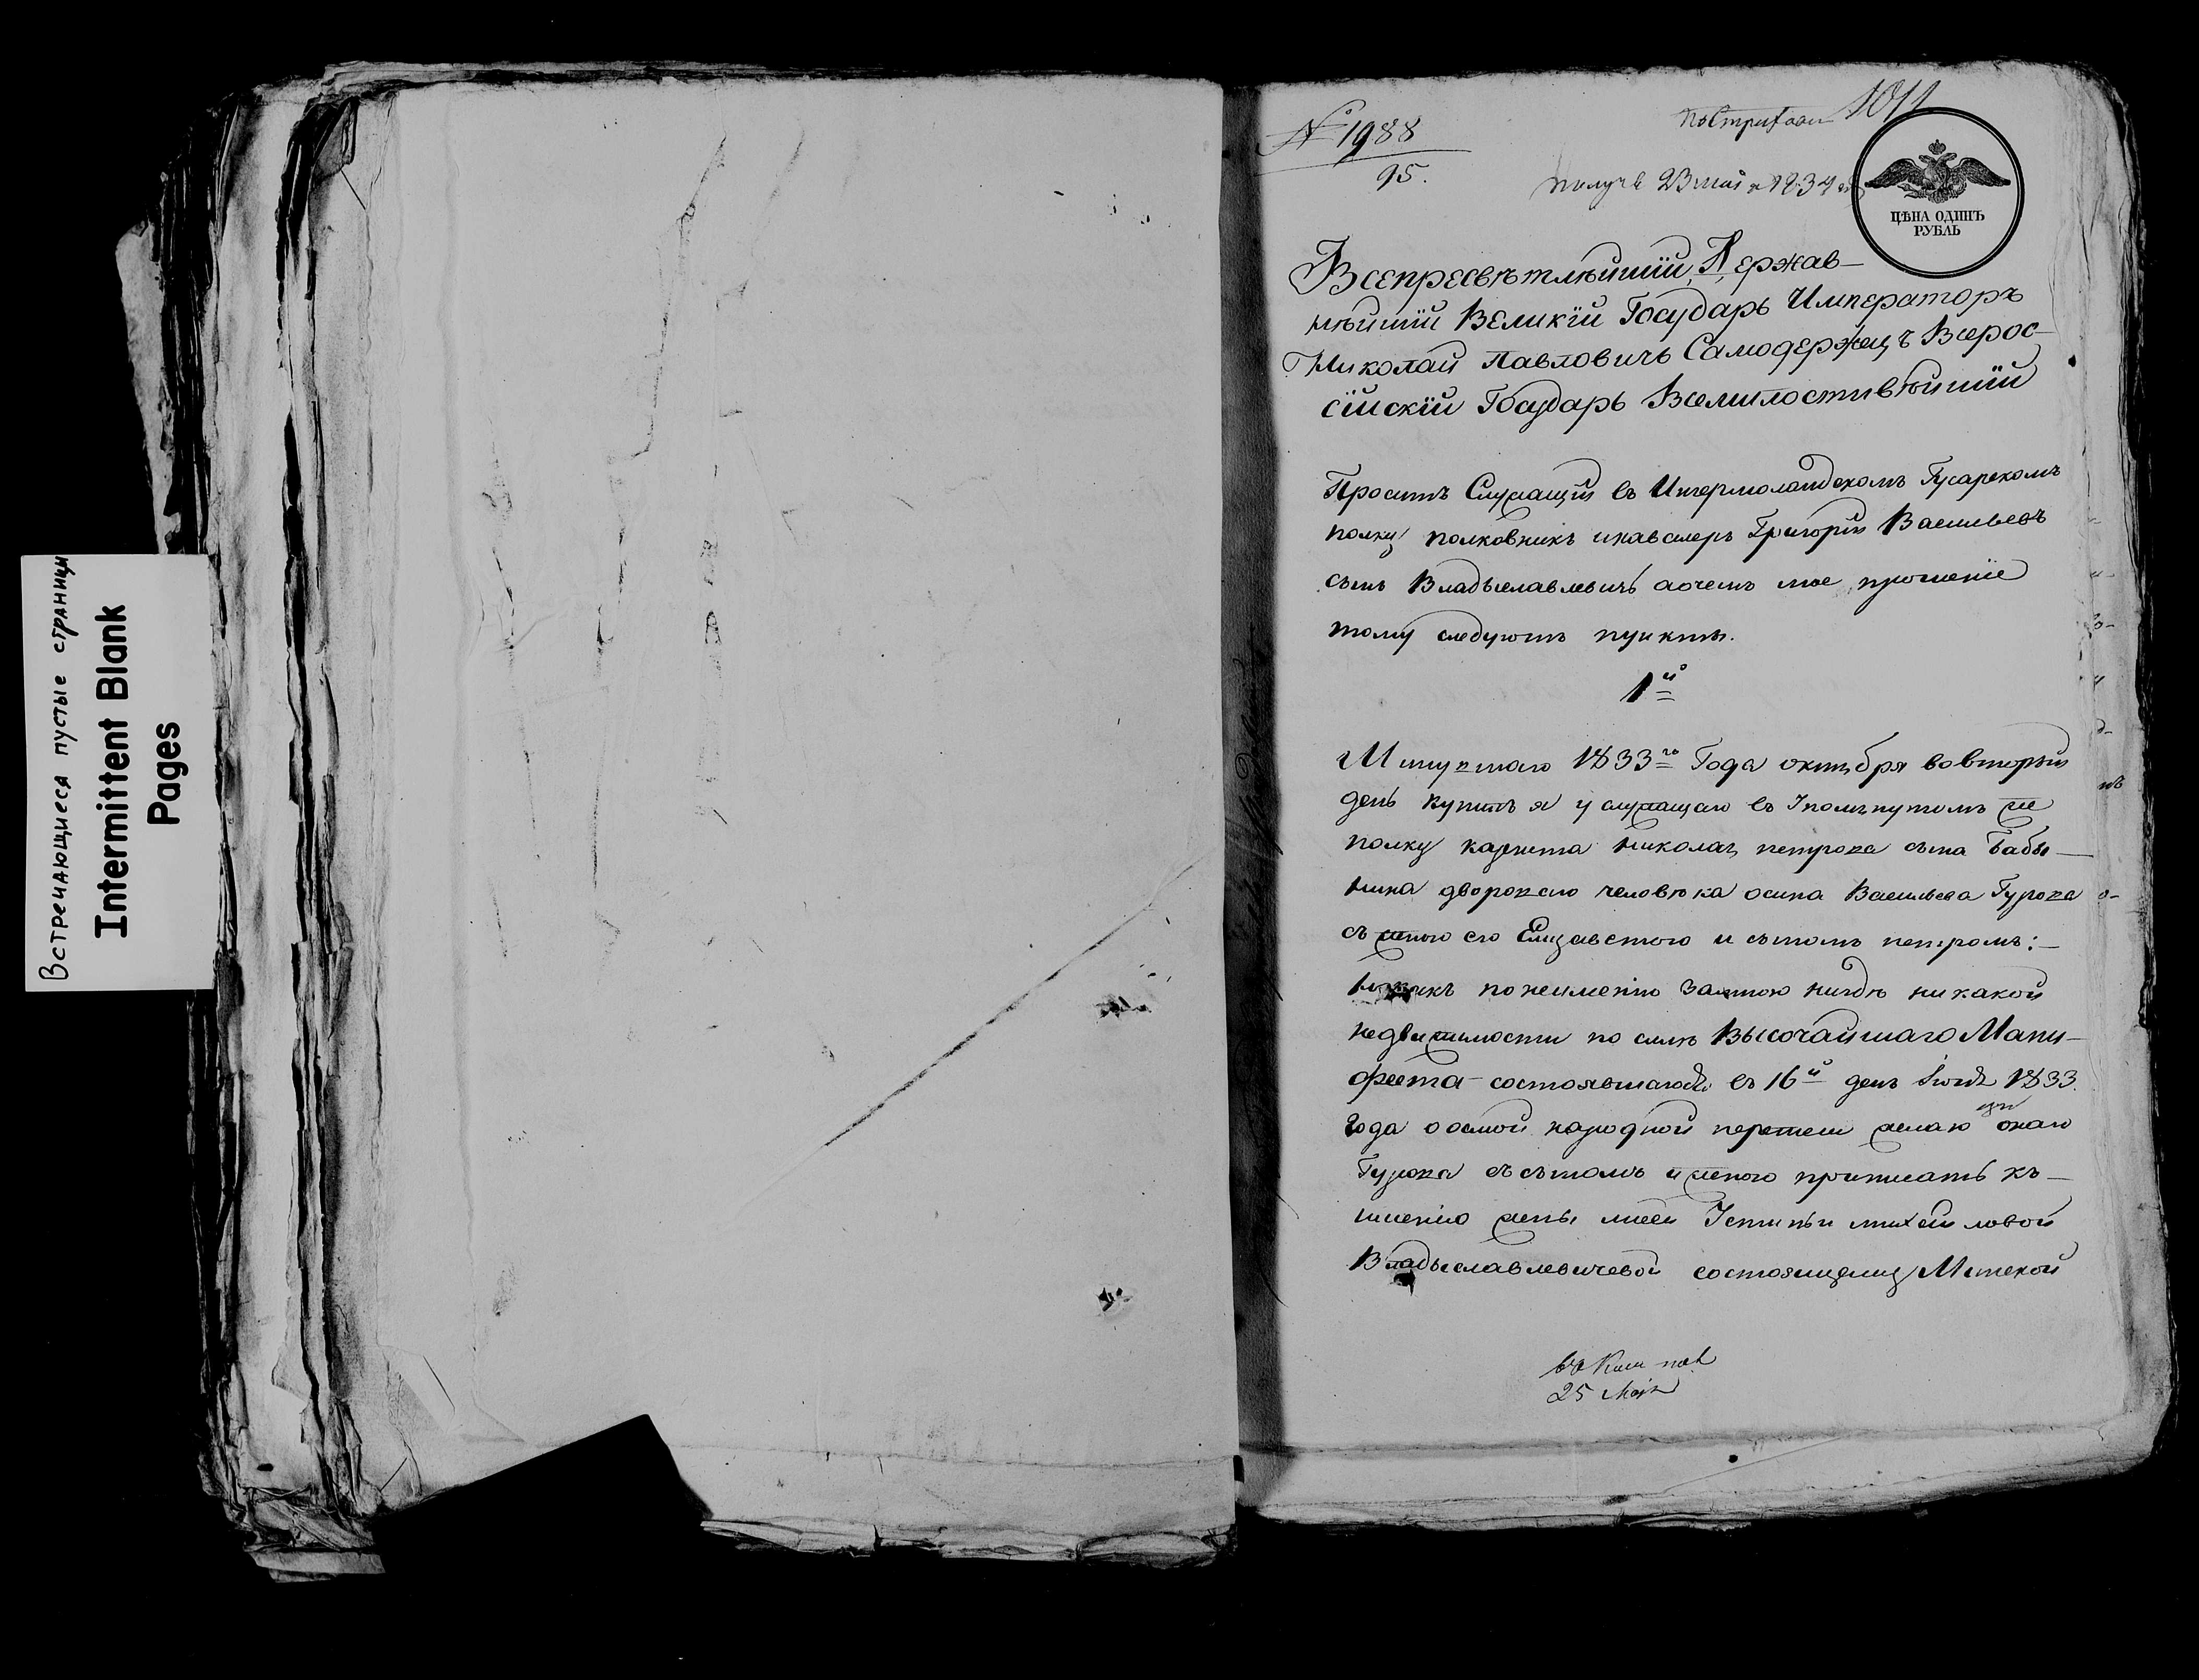 Встречающиеся пустые страницы
Intermittent Blank
Pages
1011
№ 1988
95.
получе 23 мая 1834
ЦѢНА ОДИНЪ
РУБЛЬ
Всепресвѣтлѣйшій, Держав-
нѣйшій Великій Государь Императоръ
Николай Павловичь Самодержецъ Всерос-
сійскій Государь Всемилостивѣйшій
Проситъ Служащій въ Ингермоландскомъ Гусарскомъ
полку полковникъ икавалеръ Григорій Васильевъ
сынъ Владыславлевичь аочемъ мое прошеніе
тому следуютъ пункты.
1й
Минувшаго 1833го Года октября вовторый
день купилъ я у служащаго въ Iпомянутомъ же
полку Николая петрова сына Бабы-
нина двороваго человѣка осипа Васильева Гурова
съ женою его Елизаветою и сыномъ петромъ:
какъ понеимению замною нигдѣ никакой
недвижимости по силѣ Высочайшаго Мани-
феста состоявшагося въ 16й день 1833.
Года о осмой народной переписи желаю онаго
Гурова съ сыномъ и женою приписать къ
имению жены моей Устиньи михайловой
Владыславлевичевой состоящему Минской
25 Мая